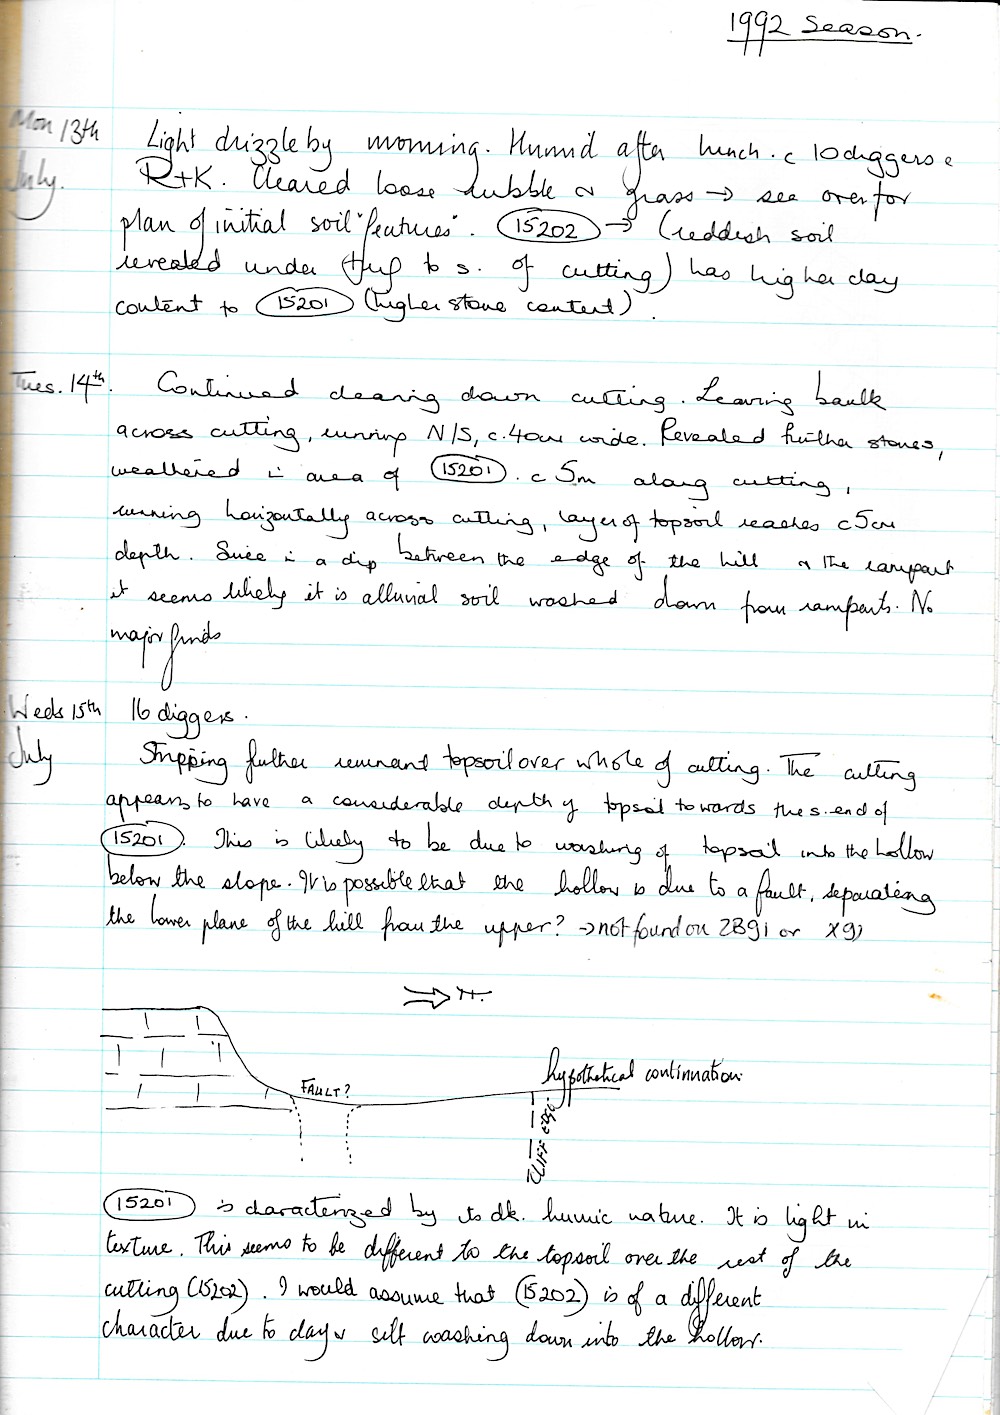 1992 Season.
Mon 13th Light drizzle by morning. Humid after lunch. c 10 diggers c
July. R+K. Cleared loose rubble & grass → see over for
plan of initial soil "features". (15202) → (reddish soil
revealed under turf to s. of cutting) has higher clay
content to (15201) (higher stone content).
Tues. 14th. Continued cleaning down cutting. Leaving baulk
across cutting, running N/S, c. 40cm wide. Revealed further stones,
weathered in area of (15201). c 5m along cutting,
running horizontally across cutting, layer of topsoil reaches c 5cm
depth. Since in a dip between the edge of the hill & the rampart
it seems likely it is alluvial soil washed down from ramparts. No
major finds
Weds 15th 16 diggers.
July Stripping further remnant topsoil over whole of cutting. The cutting
appears to have a considerable depth of topsoil towards the s. end of
(15201). This is likely to be due to washing of topsoil into the hollow
below the slope. It is possible that the hollow is due to a fault, separating
the lower plane of the hill from the upper? → not found on ZB91 or X91
⇒ N.
hypothetical continuation
FAULT?
CLIFF EDGE
(15201) is characterized by its dk. humic nature. It is light in
texture. This seems to be different to the topsoil over the rest of the
cutting (15202). I would assume that (15202) is of a different
character due to clay & silt washing down into the hollow.